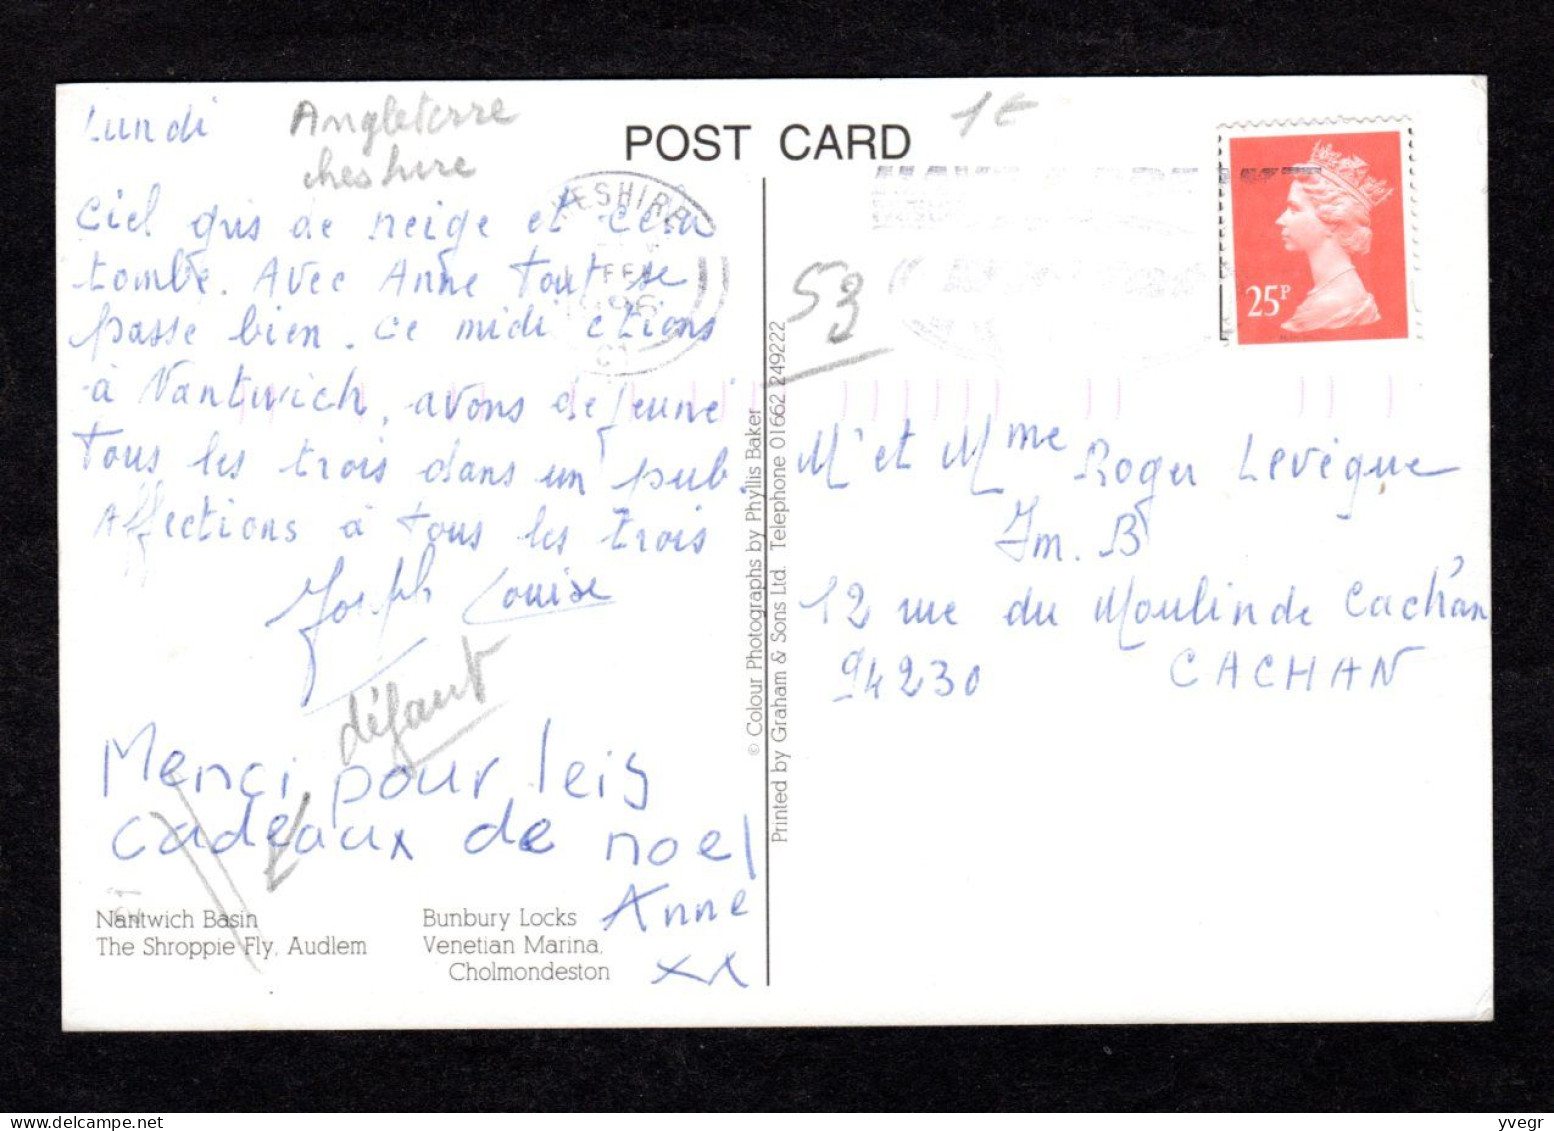 Lundi
Angleterre
cheshire
POST CARD
1€
ciel gris de neige et cela
tombe. Avec Anne tout se
passe bien. Ce midi étions
à Nantwich, avons dejeuné
tous les trois dans un pub.
Affections à tous les trois
Joseph Louise
défaut
Merci pour leis
cadeaux de noel
Anne
xx
Nantwich Basin
The Shroppie Fly, Audlem
Bunbury Locks
Venetian Marina,
Cholmondeston
© Colour Photographs by Phyllis Baker
Printed by Graham & Sons Ltd. Telephone 01662 249222
53
HESHIRE
1996
25P
Mr et Mme Roger Levêque
Im. B
12 rue du Moulin de Cachan
94230 CACHAN
yvegr
www.delcampe.net